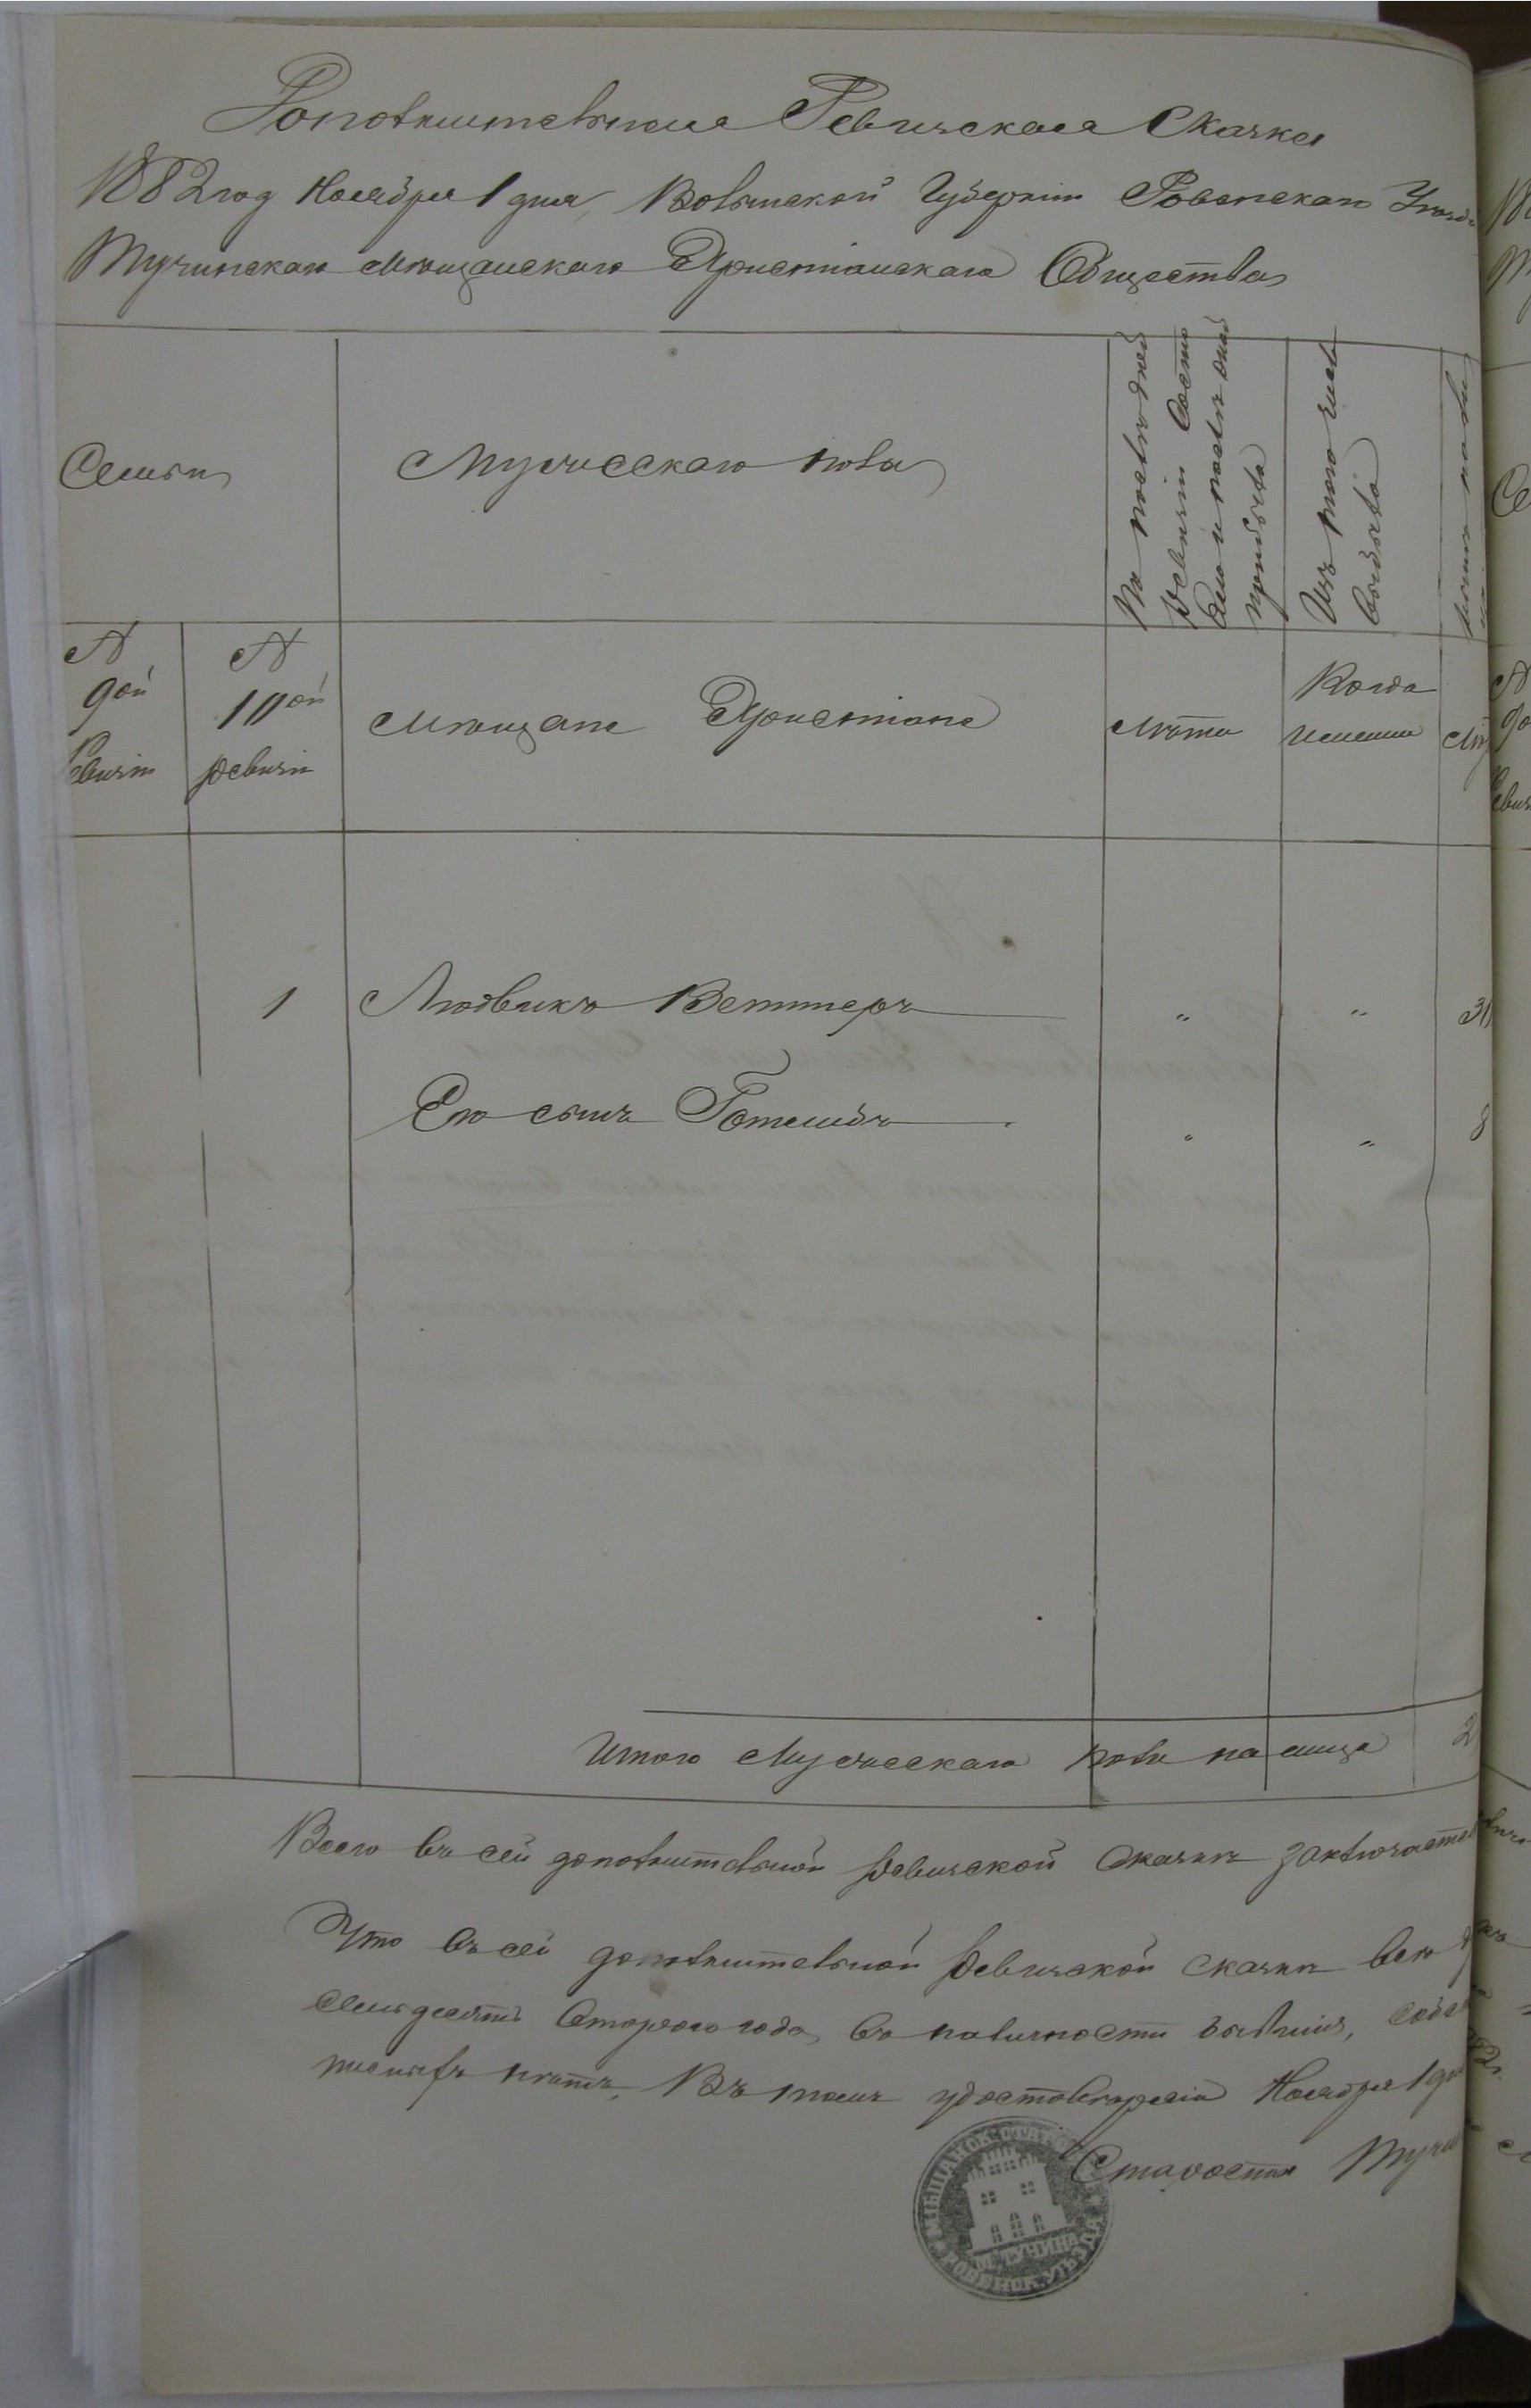 Дополнительная Ревизская Сказка
1882 год Ноября 1 дня, Волынской Губерніи Ровенскаго Уѣзда
Тучинскаго Мѣщанскаго Христіанскаго Общества
Семьи
Мужескаго пола
По последней
ревизіи состо
яло и после оной
прибыло
Изъ того числа
выбыло
№
9ой
Ревизіи
№
10ой
ревизіи
Мѣщане Христіане
Лѣта
Когда
именно
Лѣ
1 Людвикъ Веттеръ " " 31
Его сынъ Готлибъ " " 8
Итого Мужескаго пола на лицо 2
Всего въ сей дополнительной ревизской сказки заключается
Что въ сей дополнительной ревизской сказки всѣ
семьдесятъ второго года, въ наличности
нѣтъ, Въ томъ удостовѣряю Ноября 1 дня
Староста Тучин
МѢЩАНСК. СТАРО
М. ТУЧИНА
РОВЕНСК. УѢЗДА